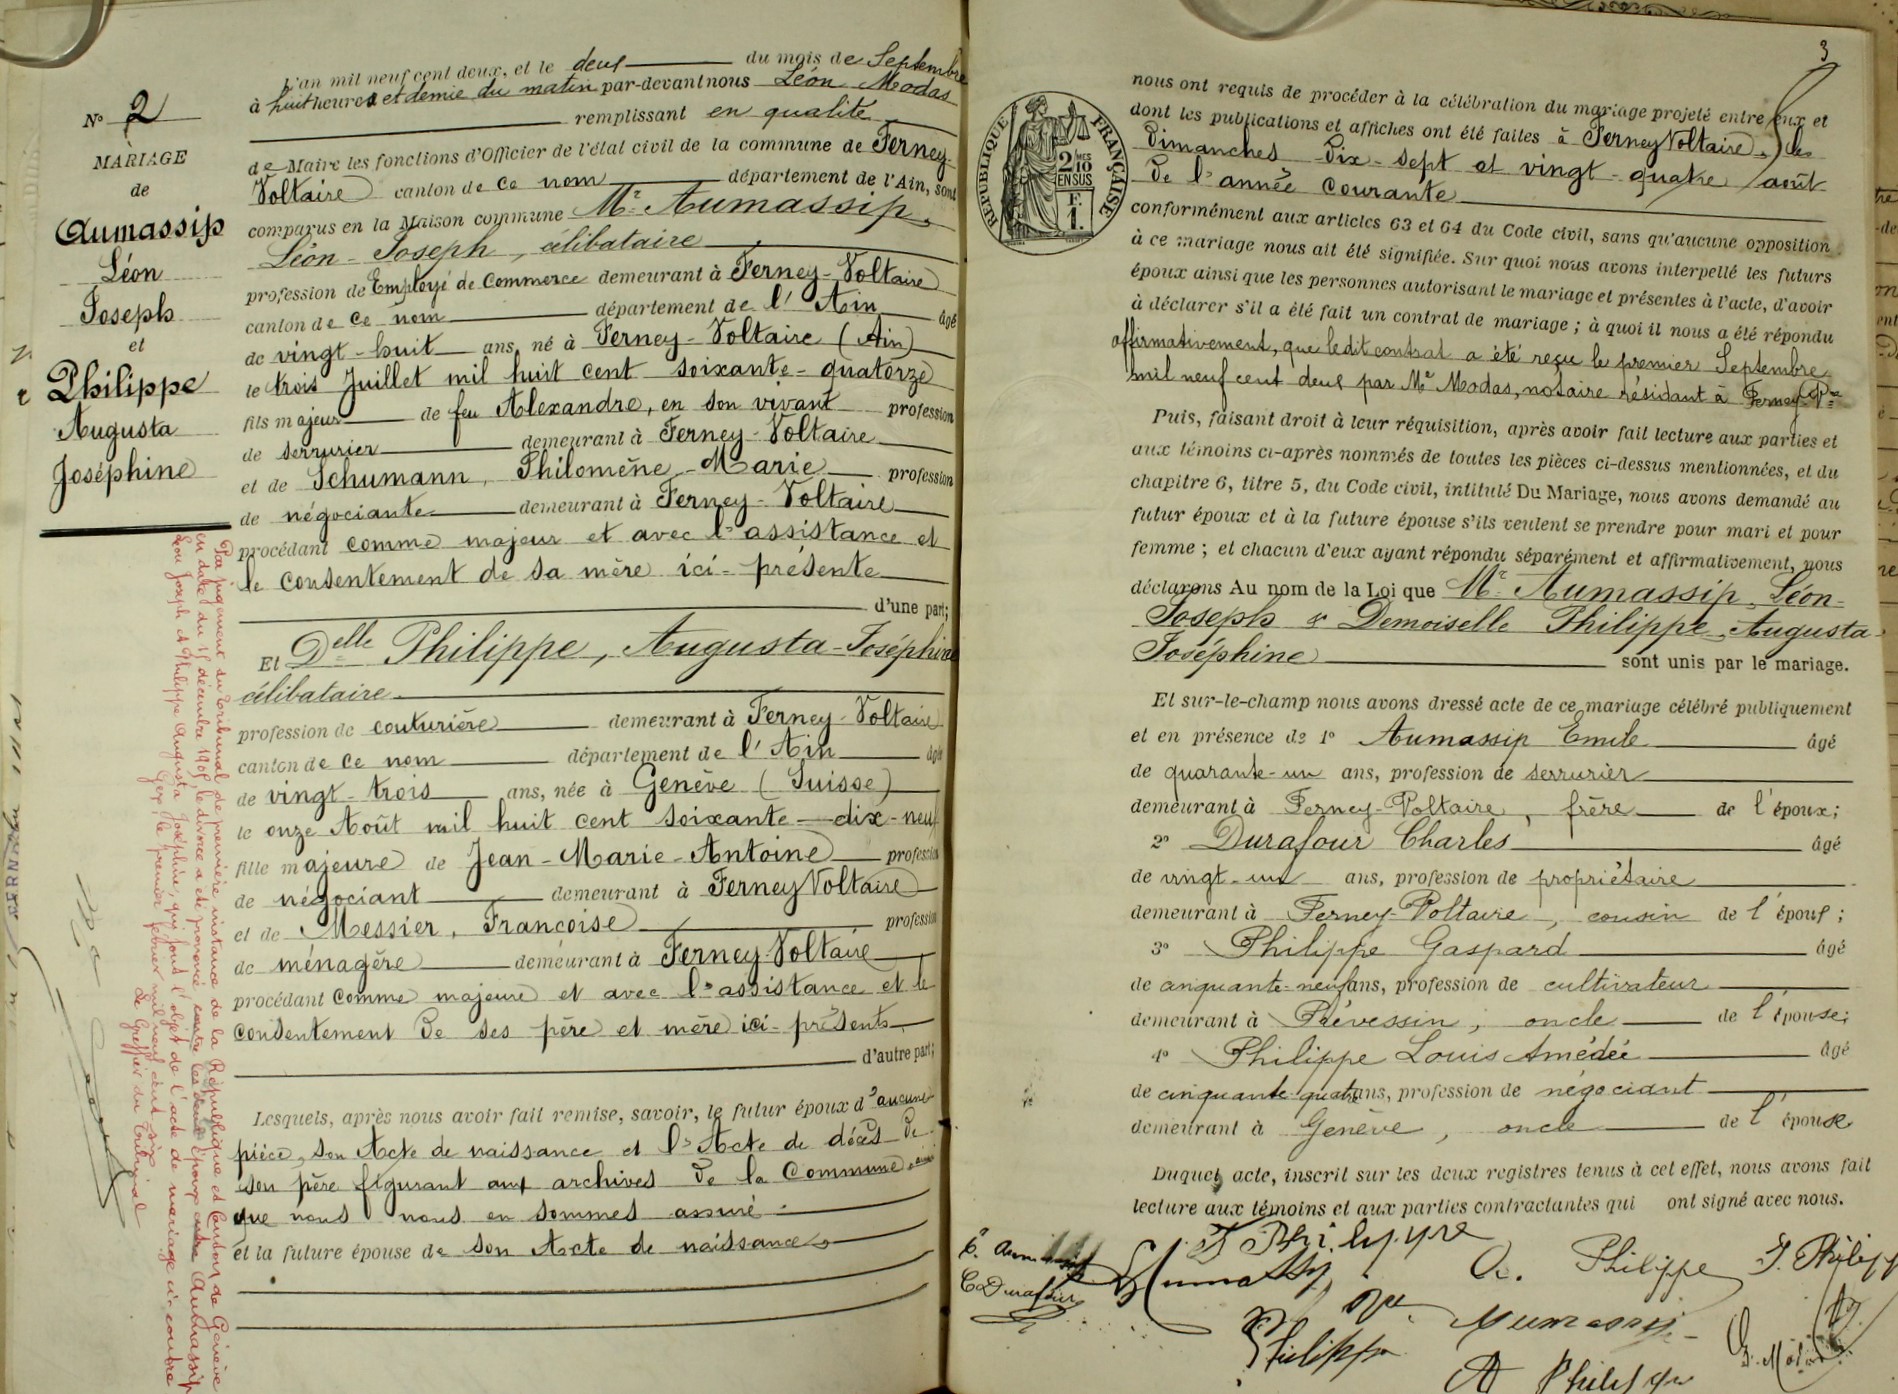 N° 2
MARIAGE
de
Aumassip
Léon
Joseph
et
Philippe
Augusta
Joséphine
Par jugement du Tribunal de première instance de la République et Canton de Genève
en date du 15 décembre 1905, le divorce a été prononcé contre les deux époux Aumassip
Léon Joseph et Philippe Augusta Joséphine, qui font l'objet de l'acte de mariage ci-contre
Gex, le premier février mil neuf cent six
Le Greffier du Tribunal
L'an mil neuf cent deux, et le deux du mois de Septembre
à huit heures et demie du matin par-devant nous Léon Modas
remplissant en qualité
de Maire les fonctions d'Officier de l'état civil de la commune de Ferney-
Voltaire canton de ce nom département de l'Ain, sont
comparus en la Maison commune Mr Aumassip,
Léon-Joseph, célibataire
profession de Employé de Commerce demeurant à Ferney-Voltaire
canton de ce nom département de l'Ain âgé
de vingt-huit ans, né à Ferney-Voltaire (Ain)
le trois Juillet mil huit cent soixante-quatorze
fils majeur de feu Alexandre, en son vivant profession
de serrurier demeurant à Ferney-Voltaire
et de Schumann, Philomène-Marie profession
de négociante demeurant à Ferney-Voltaire
procédant comme majeur et avec l'assistance et
le consentement de sa mère ici-présente
d'une part;
Et Delle Philippe, Augusta-Joséphine
célibataire
profession de couturière demeurant à Ferney-Voltaire
canton de ce nom département de l'Ain âgée
de vingt-trois ans, née à Genève (Suisse)
le onze Août mil huit cent soixante-dix-neuf
fille majeure de Jean-Marie-Antoine profession
de négociant demeurant à Ferney Voltaire
et de Messier, Françoise profession
de ménagère demeurant à Ferney-Voltaire
procédant comme majeure et avec l'assistance et le
consentement de ses père et mère ici-présents
d'autre part;
Lesquels, après nous avoir fait remise, savoir, le futur époux d'aucune
pièce, son Acte de naissance et l'Acte de décès de
son père figurant aux archives de la Commune, ainsi
que nous nous en sommes assuré
et la future épouse de son Acte de naissance
3
RÉPUBLIQUE FRANÇAISE
2 MES 10
EN SUS
F.
1.
nous ont requis de procéder à la célébration du mariage projeté entre eux et
dont les publications et affiches ont été faites à Ferney Voltaire, les
Dimanches Dix-sept et vingt-quatre août
de l'année courante
conformément aux articles 63 et 64 du Code civil, sans qu'aucune opposition
à ce mariage nous ait été signifiée. Sur quoi nous avons interpellé les futurs
époux ainsi que les personnes autorisant le mariage et présentes à l'acte, d'avoir
à déclarer s'il a été fait un contrat de mariage ; à quoi il nous a été répondu
affirmativement, que ledit contrat a été reçu le premier Septembre
mil neuf cent deux par Me Modas, notaire résidant à Ferney-Vre
Puis, faisant droit à leur réquisition, après avoir fait lecture aux parties et
aux témoins ci-après nommés de toutes les pièces ci-dessus mentionnées, et du
chapitre 6, titre 5, du Code civil, intitulé Du Mariage, nous avons demandé au
futur époux et à la future épouse s'ils veulent se prendre pour mari et pour
femme ; et chacun d'eux ayant répondu séparément et affirmativement, nous
déclarons Au nom de la Loi que Mr Aumassip, Léon-
Joseph & Demoiselle Philippe, Augusta-
Joséphine sont unis par le mariage.
Et sur-le-champ nous avons dressé acte de ce mariage célébré publiquement
et en présence de 1° Aumassip Emile âgé
de quarante-un ans, profession de serrurier
demeurant à Ferney-Voltaire, frère de l'époux;
2° Durafour Charles âgé
de vingt-un ans, profession de propriétaire
demeurant à Ferney-Voltaire, cousin de l'époux;
3° Philippe Gaspard âgé
de cinquante-neuf ans, profession de cultivateur
demeurant à Prévessin, oncle de l'épouse;
4° Philippe Louis Amédée âgé
de cinquante-quatre ans, profession de négociant
demeurant à Genève, oncle de l'épouse
Duquel acte, inscrit sur les deux registres tenus à cet effet, nous avons fait
lecture aux témoins et aux parties contractantes qui ont signé avec nous.
E. Aumassip
C Durafour
Aumassip
A. Philippe
J. Philippe
Philippe
Aumassip
A Philippe